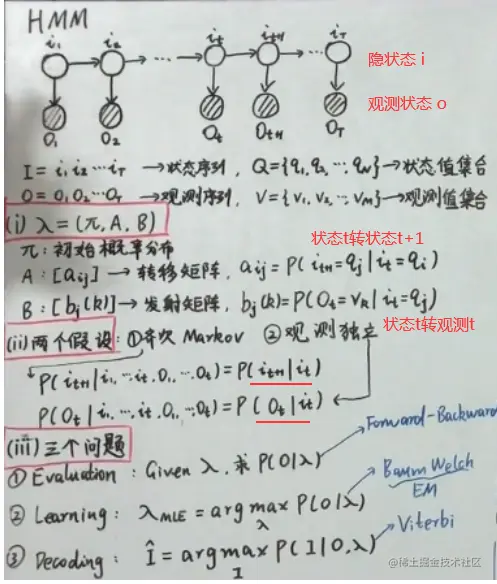 HMM
i₁ i₂ ... iₜ iₜ₊₁ ... i_T
隐状态 i
观测状态 o
O₁ O₂ Oₜ Oₜ₊₁ O_T
I = i₁ i₂ ... i_T → 状态序列, Q = {q₁, q₂, ..., q_N} → 状态值集合
O = O₁ O₂ ... O_T → 观测序列, V = {v₁, v₂, ..., v_M} → 观测值集合
(i) λ = (π, A, B)
π: 初始概率分布
状态t转状态t+1
A: [aᵢⱼ] → 转移矩阵, aᵢⱼ = P(iₜ₊₁ = qⱼ | iₜ = qᵢ)
B: [bⱼ(k)] → 发射矩阵, bⱼ(k) = P(Oₜ = v_k | iₜ = qⱼ)
状态t转观测t
(ii) 两个假设: ① 齐次 Markov ② 观测独立
P(iₜ₊₁ | i₁, ..., iₜ, O₁, ..., Oₜ) = P(iₜ₊₁ | iₜ)
P(Oₜ | i₁, ..., iₜ, O₁, ..., Oₜ) = P(Oₜ | iₜ)
(iii) 三个问题
Forward-Backward
① Evaluation: Given λ, 求 P(O|λ)
Baum Welch
② Learning: λ_MLE = arg max_λ P(O|λ)
EM
Viterbi
③ Decoding: Î = arg max_I P(I | O, λ)
@稀土掘金技术社区